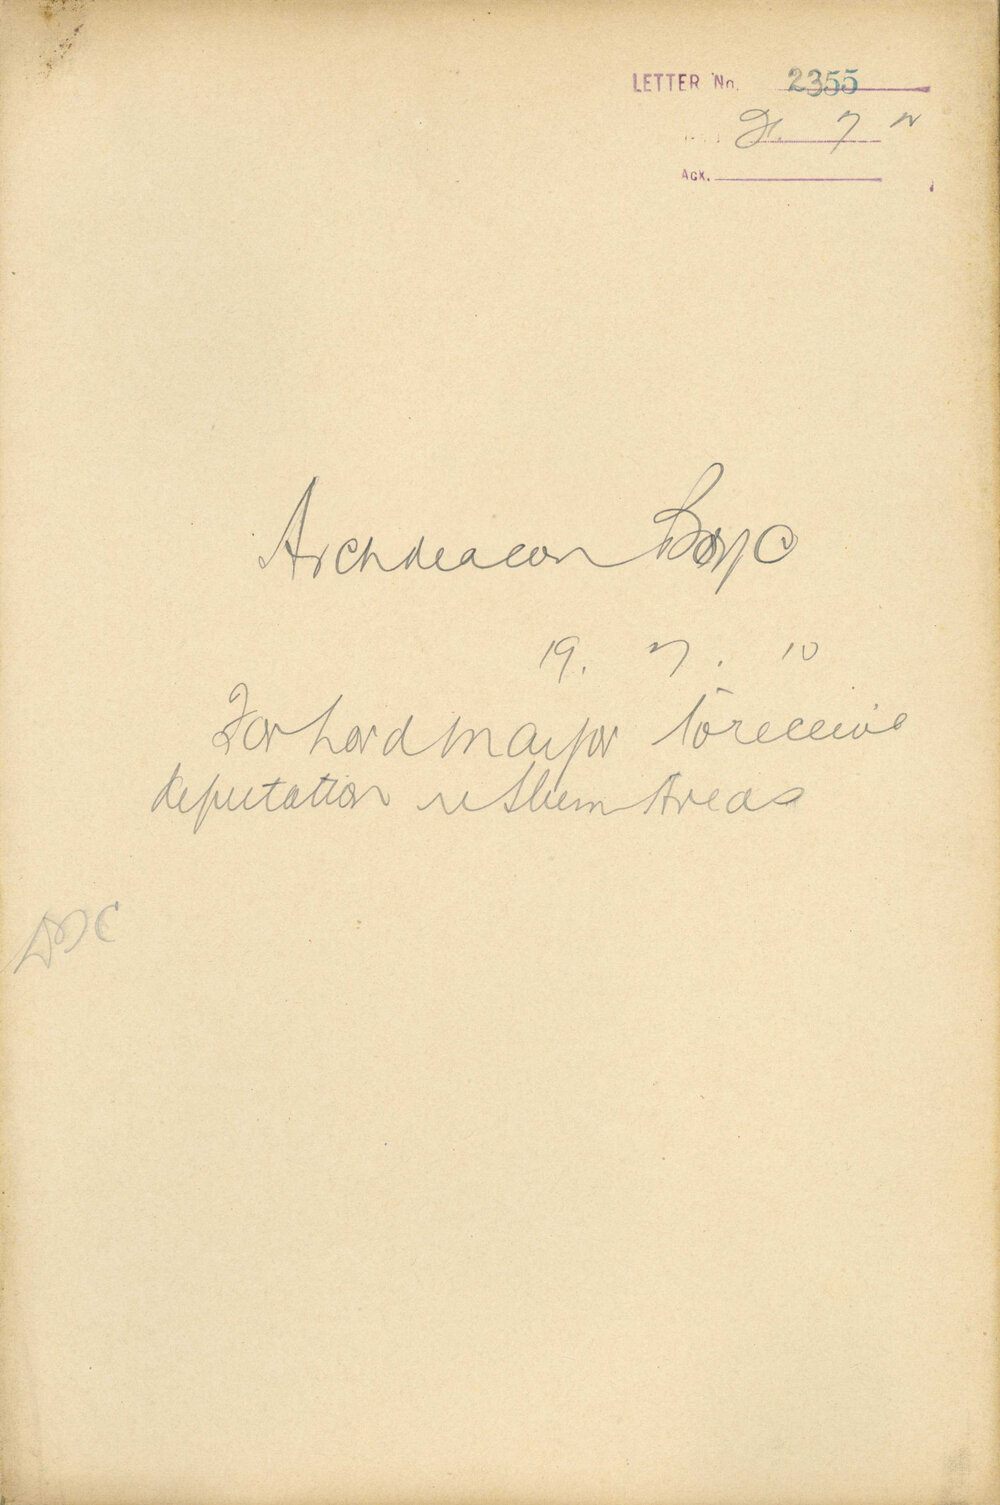 LETTER No. 2355
21. 7 10
Ack.
Archdeacon Boyce
19. 7. 10
For Lord Mayor to receive
deputation re Slum Areas